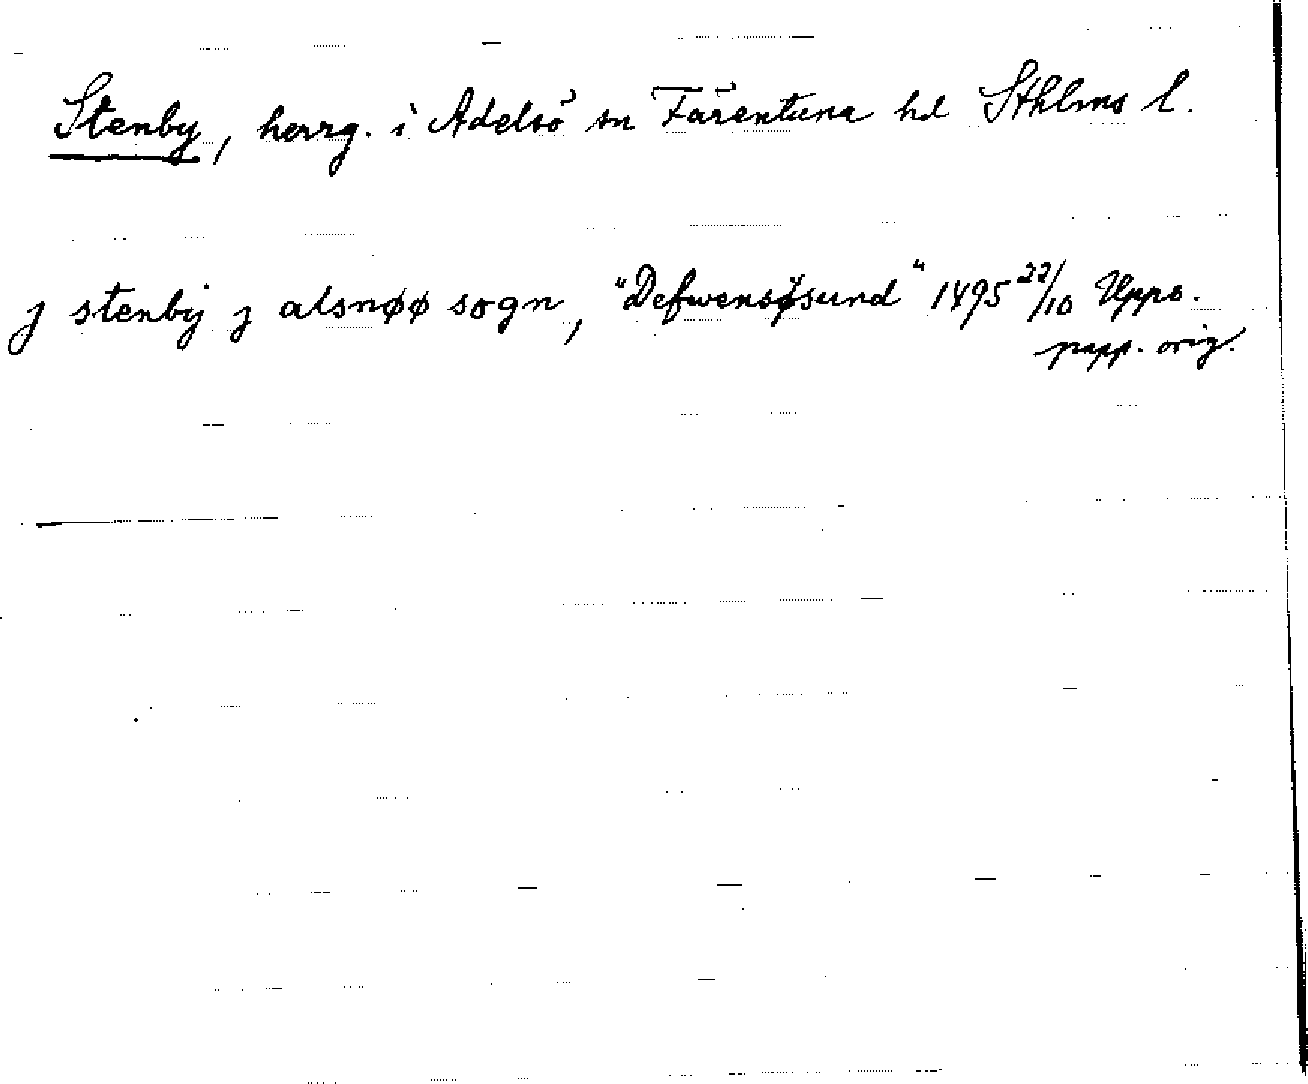 Stenby, herrg. i Adelsö sn Färentuna hd Sthlms l.
j stenbÿ j alsnøø sogn, "Defwensøsund" 1495 22/10 Upps.
papp. orig.